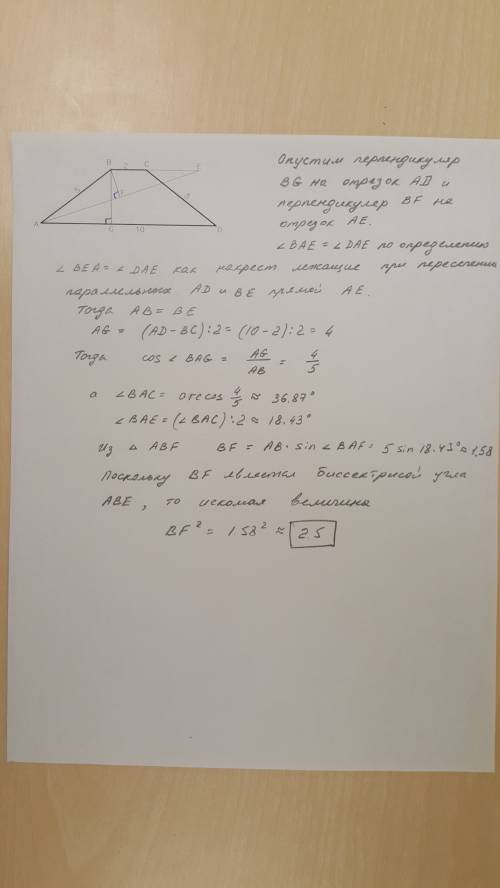 B 2 C E
5 F 5
A G 10 D
Опустим перпендикуляр
BG на отрезок AD и
перпендикуляр BF на
отрезок AE.
∠BAE = ∠DAE по определению
∠BEA = ∠DAE как накрест лежащие при пересечении
параллельных AD и BE прямой AE.
Тогда AB = BE
AG = (AD-BC):2 = (10-2):2 = 4
Тогда cos ∠BAG = AG/AB = 4/5
а ∠BAC = arccos 4/5 ≈ 36.87°
∠BAE = (∠BAC):2 ≈ 18.43°
Из △ABF BF = AB · sin ∠BAF = 5 sin 18.43° ≈ 1,58
Поскольку BF является биссектрисой угла
ABE, то искомая величина
BF² = 1.58² ≈ 2.5